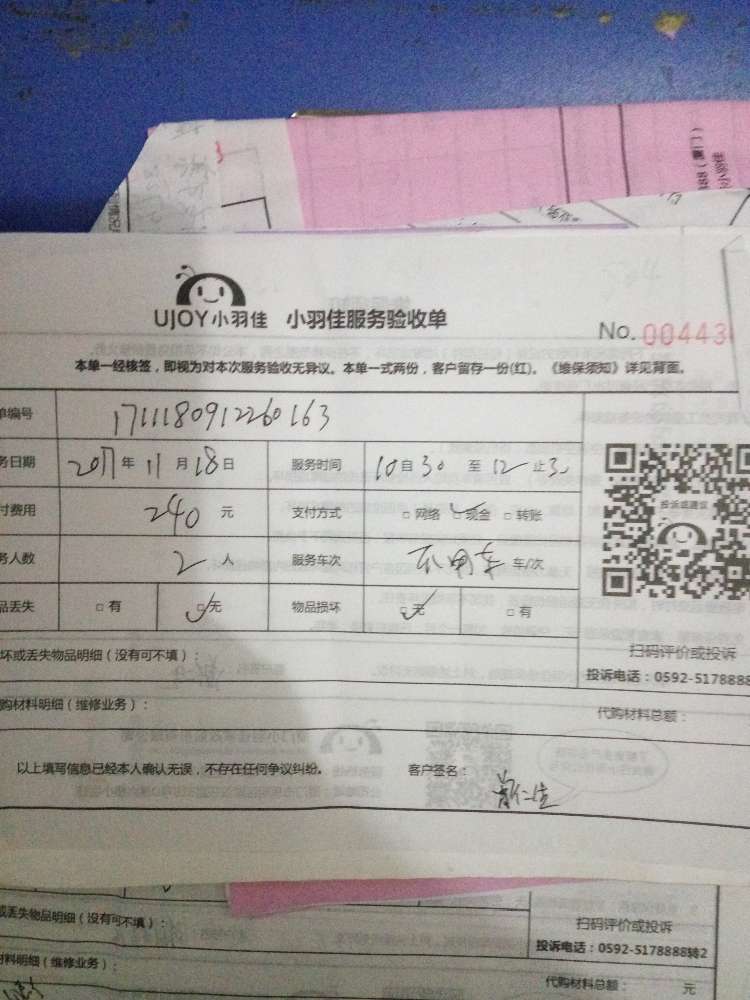 188（厦门）
小羽佳
UJOY小羽佳 小羽佳服务验收单
No. 004430
本单一经核签，即视为对本次服务验收无异议。本单一式两份，客户留存一份(红)。《维保须知》详见背面。
单编号 1711180912260163
务日期 2017年11月18日 服务时间 10自30至12止30
付费用 240元 支付方式 □网络 □现金 □转账
务人数 2人 服务车次 不用车 车/次
品丢失 □有 □无 物品损坏 □无 □有
投诉或建议
扫码评价或投诉
投诉电话：0592-5178888
坏或丢失物品明细（没有可不填）：
购材料明细（维修业务）：
代购材料总额：
以上填写信息已经本人确认无误，不存在任何争议纠纷。 客户签名：
或丢失物品明细（没有可不填）：
扫码评价或投诉
投诉电话：0592-5178888转2
材料明细（维修业务）：
代购材料总额： 元